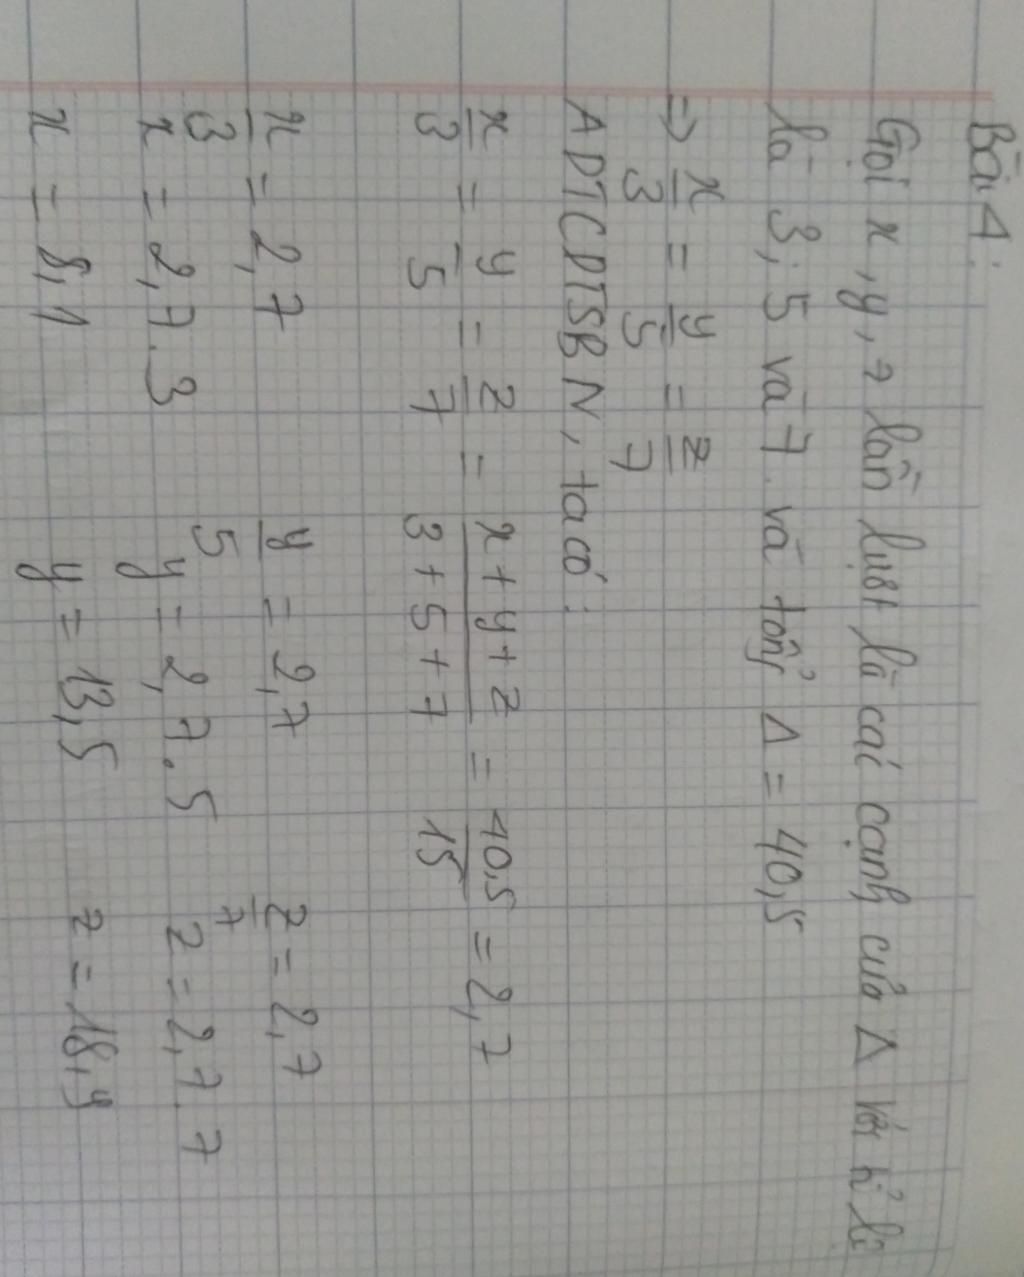 Bài 4:
Gọi x, y, z lần lượt là các cạnh của Δ với tỉ lệ
là 3; 5 và 7 và tổng Δ = 40,5
=> x/3 = y/5 = z/7
ADTCDTSBN, ta có:
x/3 = y/5 = z/7 = (x+y+z)/(3+5+7) = 40,5/15 = 2,7
x/3 = 2,7 y/5 = 2,7 z/7 = 2,7
x = 2,7.3 y = 2,7.5 z = 2,7.7
x = 8,1 y = 13,5 z = 18,9